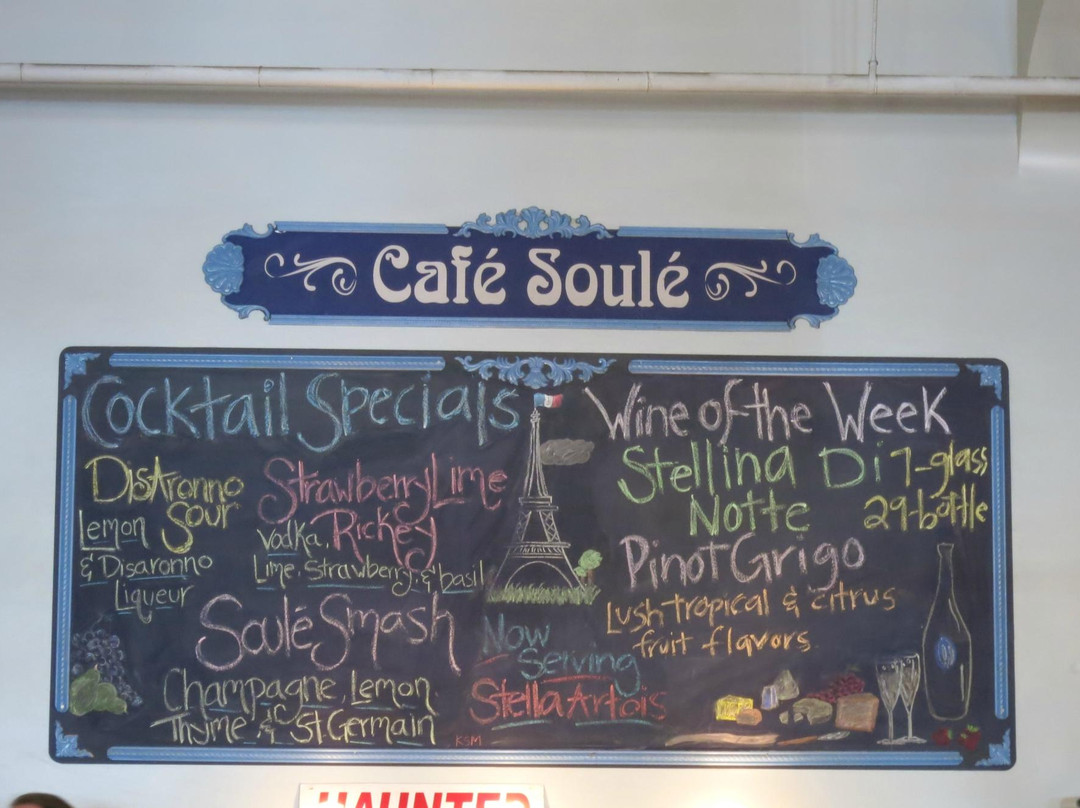 Café Soulé
Cocktail Specials
DisAronno
Sour
Lemon
& Disaronno
Liqueur
Strawberry Lime
Rickey
vodka,
Lime, Strawberry, & basil
Soulé Smash
Champagne, Lemon,
Thyme & St. Germain
Now
Serving
Stella Artois
KSM
Wine of the Week
Stellina Di
Notte
7-glass
29-bottle
Pinot Grigo
Lush tropical & citrus
fruit flavors
HAUNTED